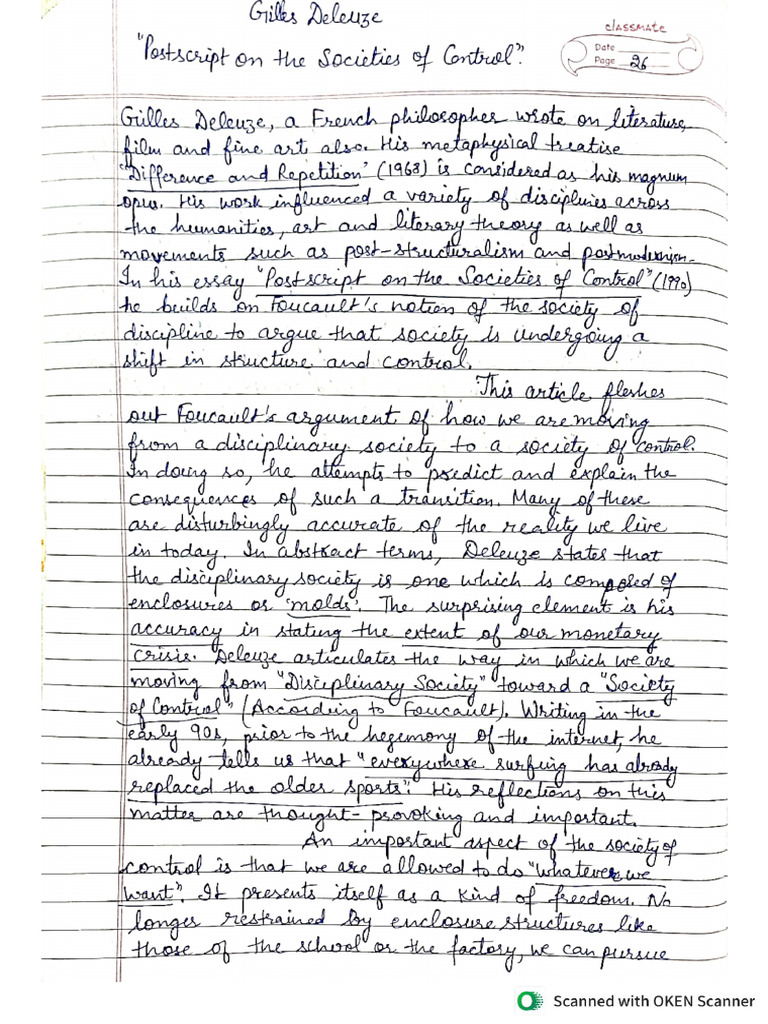 Gilles Deleuze
"Postscript on the Societies of Control".
classmate
Date
Page 26
Gilles Deleuze, a French philosopher wrote on literature,
film and fine art also. His metaphysical treatise
"Difference and Repetition" (1968) is considered as his magnum
opus. His work influenced a variety of disciplines across
the humanities, art and literary theory as well as
movements such as post-structuralism and postmodernism.
In his essay "Postscript on the Societies of Control" (1990)
he builds on Foucault's notion of the society of
discipline to argue that society is undergoing a
shift in structure and control.
This article fleshes
out Foucault's argument of how we are moving
from a disciplinary society to a society of control.
In doing so, he attempts to predict and explain the
consequences of such a transition. Many of these
are disturbingly accurate of the reality we live
in today. In abstract terms, Deleuze states that
the disciplinary society is one which is composed of
enclosures or 'molds'. The surprising element is his
accuracy in stating the extent of our monetary
crisis. Deleuze articulates the way in which we are
moving from "Disciplinary Society" toward a "Society
of Control" (According to Foucault). Writing in the
early 90s, prior to the hegemony of the internet, he
already tells us that "everywhere surfing has already
replaced the older sports". His reflections on this
matter are thought-provoking and important.
An important aspect of the society of
control is that we are allowed to do "whatever we
want". It presents itself as a kind of freedom. No
longer restrained by enclosure structures like
those of the school or the factory, we can pursue
Scanned with OKEN Scanner